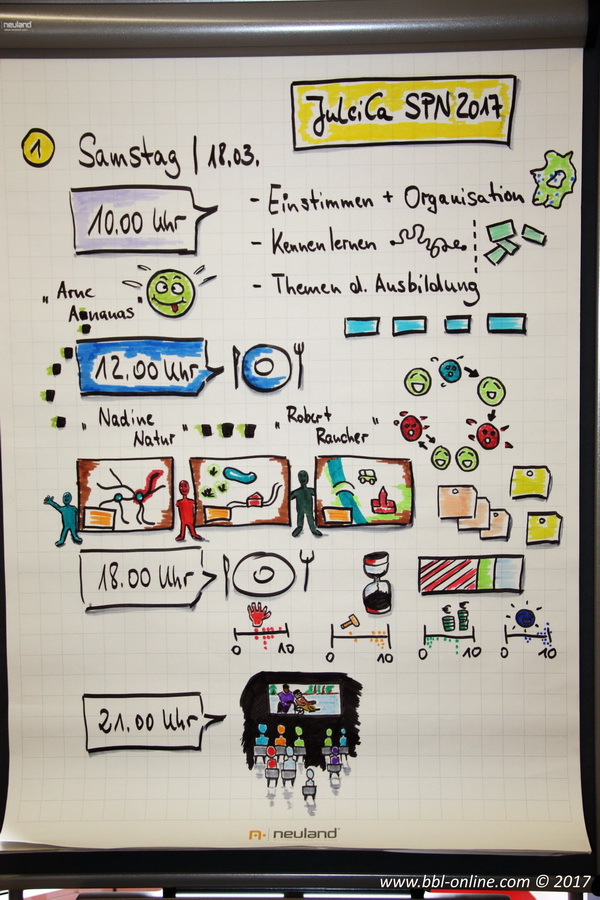 neuland
JuLeiCa SPN 2017
1 Samstag | 18.03.
10.00 Uhr
- Einstimmen + Organisation
- Kennenlernen
- Themen d. Ausbildung
"Arne
Annanas"
12.00 Uhr
"Nadine
Natur"
"Robert
Raucher"
18.00 Uhr
0 10
0 10
€ €
0 10
0 10
21.00 Uhr
neuland
www.bbl-online.com © 2017